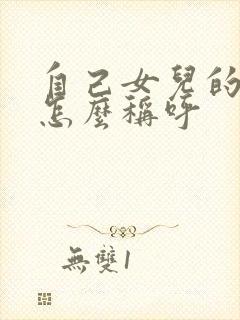 自己女兒的
怎麼稱呼
無雙1